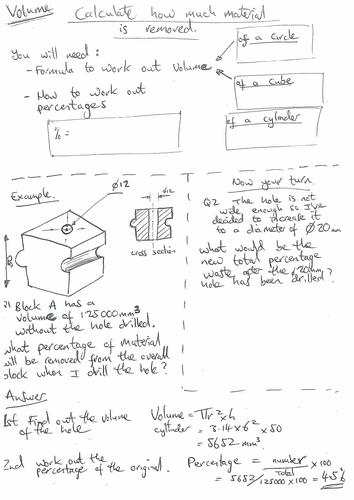 Volume
Calculate how much material
is removed.
You will need:
- Formula to work out Volume
of a circle
of a cube
of a cylinder
- How to work out
percentages
% =
Example.
Ø12
Ø12
cross section
Block A has a
volume of 125000mm³
without the hole drilled.
what percentage of material
will be removed from the overall
block when I drill the hole?
Now your turn.
Q2 The hole is not
wide enough so I've
decided to increase it
to a diameter of Ø20mm
what would be the
new total percentage
waste after the
hole has been drilled?
Answer
1st Find out the volume
of the hole
Volume = πr² × h
cylinder = 3.14 × 6² × 50
= 5652 mm³
2nd work out the
percentage of the original.
Percentage = number/total × 100
= 5652/125000 × 100 = 4.5%